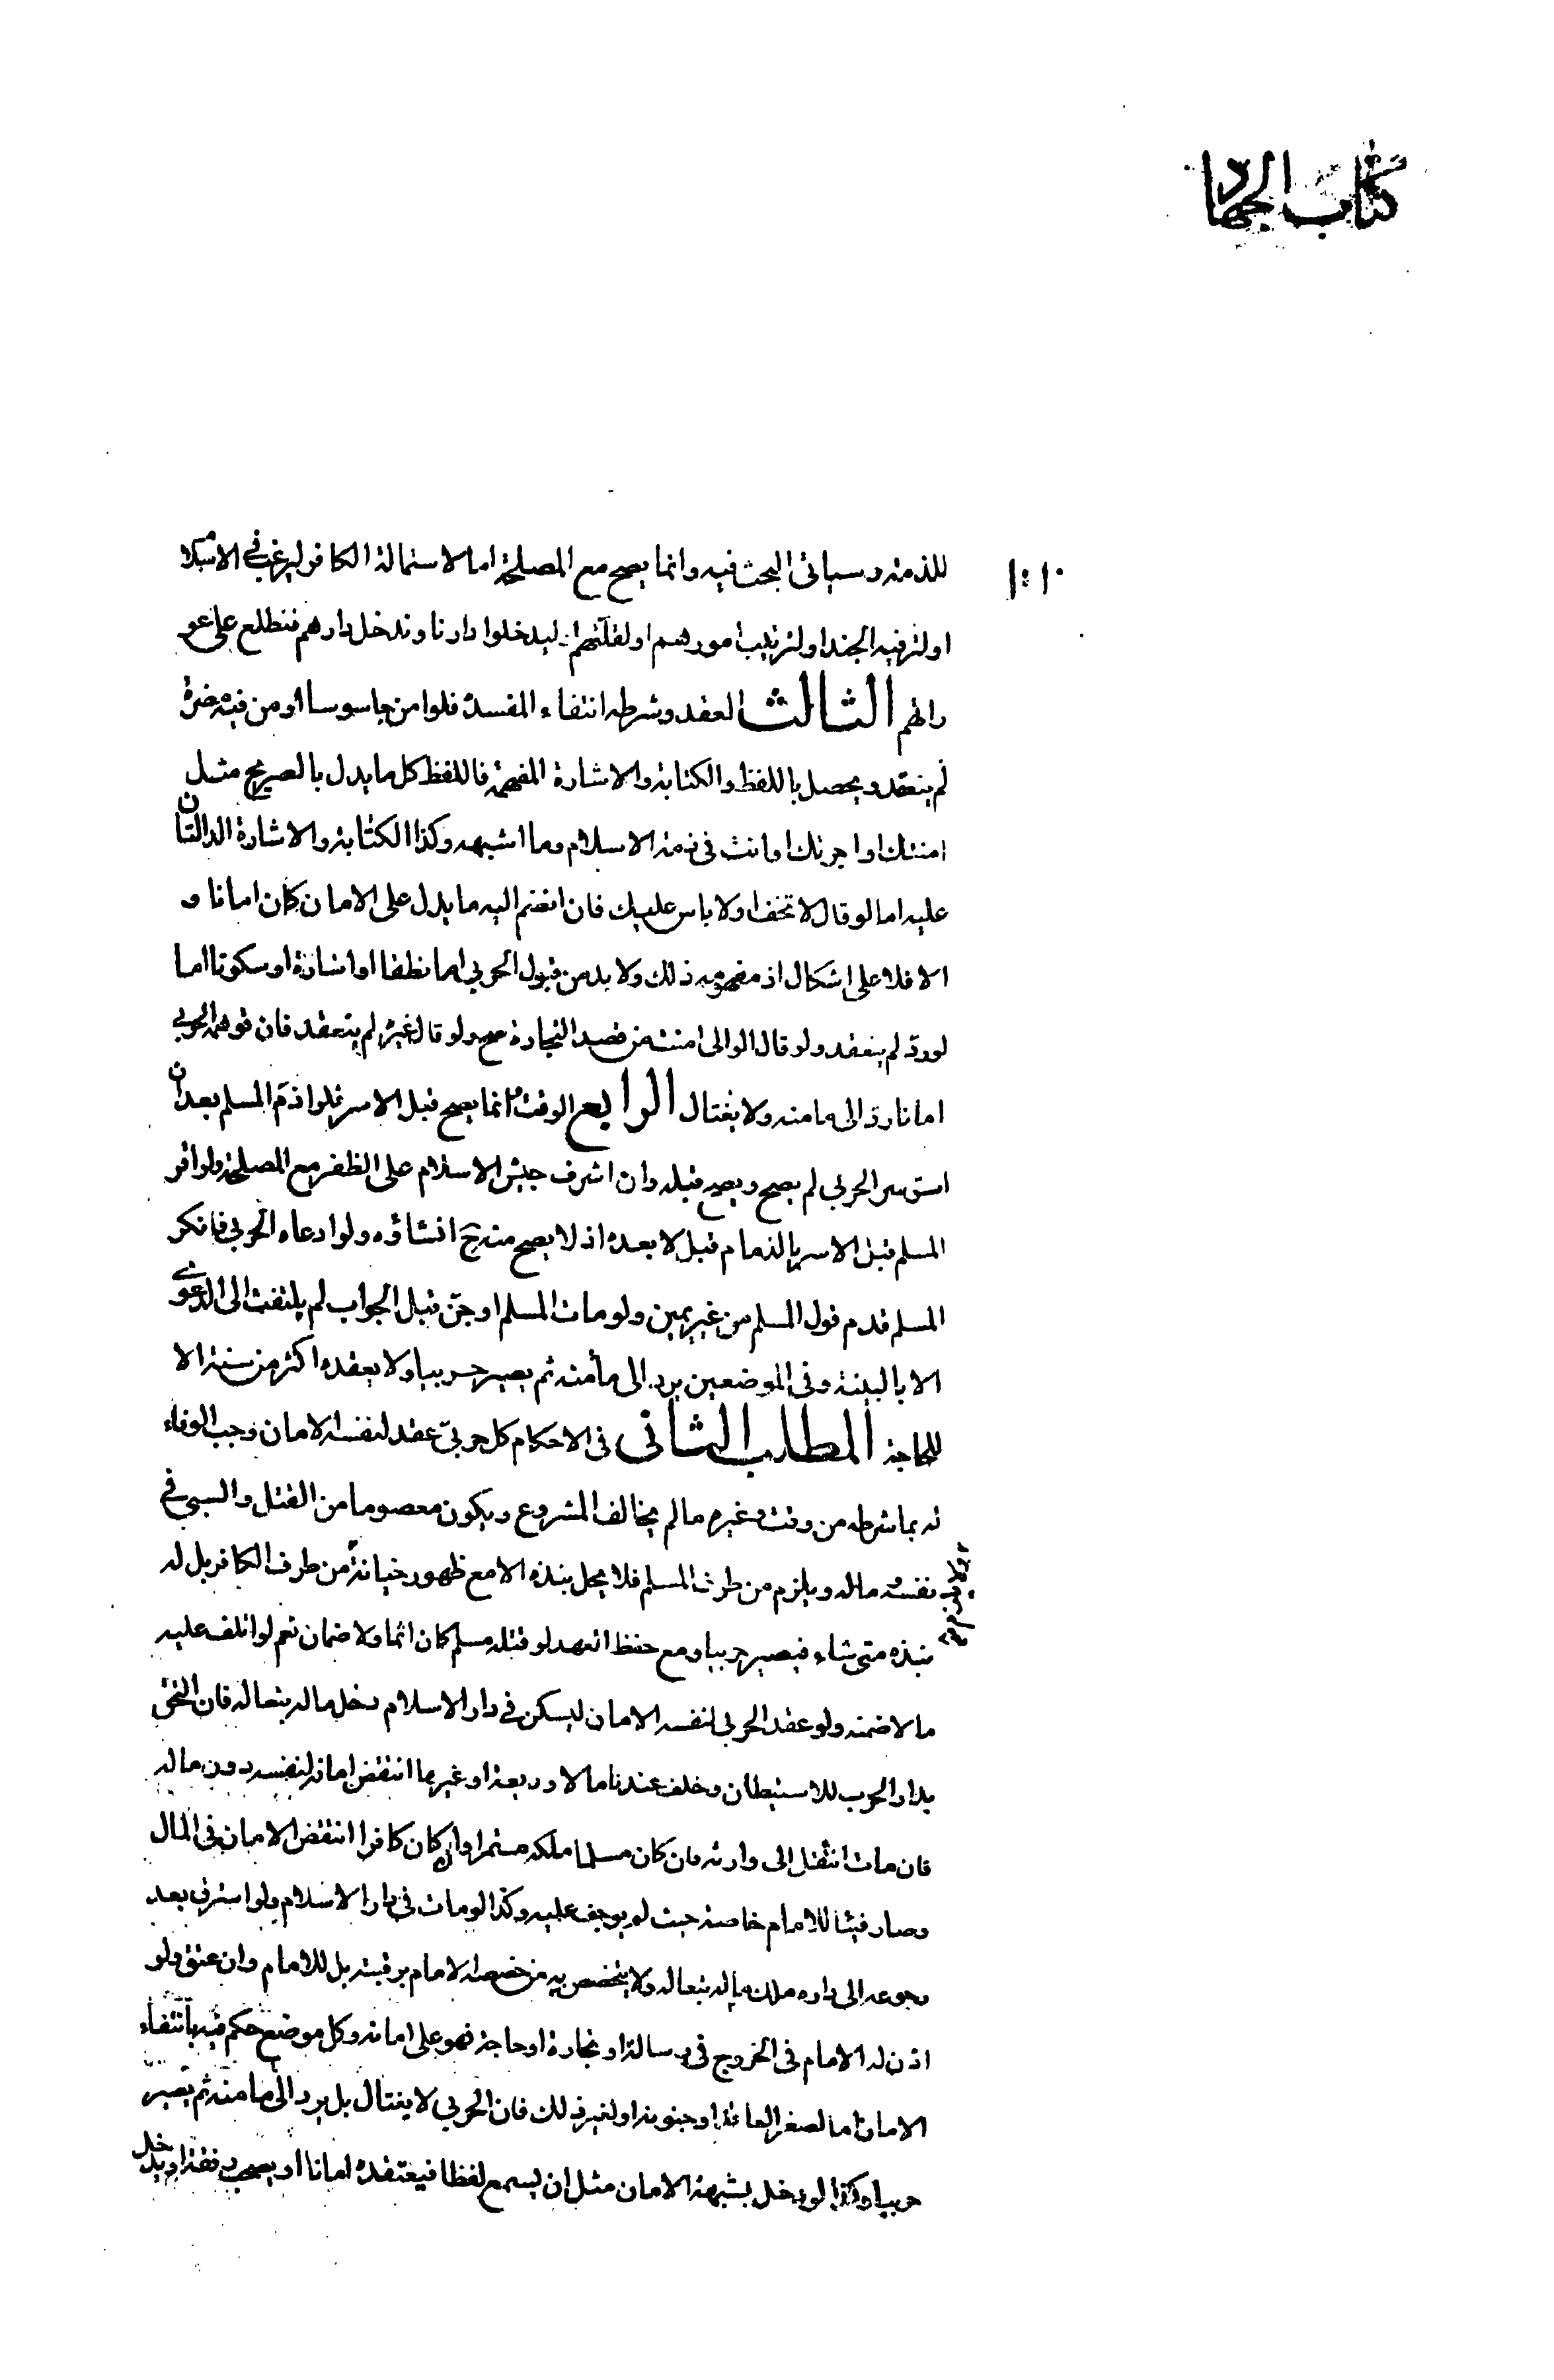 كتاب الجهاد
للذمة وسياتى البحث فيه وانما يصح مع المصلحة اما لاستمالة الكافر ليرغب في الاسلام
او لترفيه الجند او لترتيب امورهم او لقلتهم ليدخلوا دارنا وندخل دارهم فنطلع على عو
راتهم الثالث العقد وشرطه انتفاء المفسدة فلو امن جاسوسا او من فيه مضرة
لم ينعقد ويحصل باللفظ والكتابة والاشارة المفهمة فاللفظ كل ما يدل بالصريح مثل
امنتك او اجرتك او انت فى ذمة الاسلام وما اشبهه وكذا الكتابة والاشارة الدالتان
عليه اما لو قال لا تخف او لا باس عليك فان انضم اليه ما يدل على الامان كان امانا و
الا فلا على اشكال اذ مفهومه ذلك ولا بد من قبول الحربي اما نطقا او اشارة او سكوتا اما
لو رد لم ينعقد ولو قال الوالى امنت من قصد التجارة صح ولو قال غيره لم ينعقد فان توهمه الحربي
امانا رد الى مامنه ولا يغتال الرابع الوقت وانما يصح قبل الاسر فلو اذم المسلم بعد ان
استوسر الحربي لم يصح ويصح قبله وان اشرف جيش الاسلام على الظفر مع المصلحة ولو اقر
المسلم قبل الاسر بالذمام قبل لا بعده اذ لا يصح منه ح انشاؤه ولو ادعاه الحربي فانكر
المسلم قدم قول المسلم من غير يمين ولو مات المسلم او جن قبل الجواب لم يلتفت الى الدعوى
الا بالبينة وفى الموضعين يرد الى مأمنه ثم يصير حربيا ولا يعقده اكثر من سنة الا
للحاجة المطلب الثانى فى الاحكام كل حربي عقد لنفسه الامان وجب الوفاء
له بما شرطه من وقت وغيره ما لم يخالف المشروع ويكون معصوما من القتل والسبي في
نفسه وماله ويلزم من طرف المسلم فلا يحل نبذه الا مع ظهور خيانة من طرف الكافر بل له
نبذه متى شاء فيصير حربيا ومع حفظ العهد لو قتله مسلم كان اثما ولا ضمان نعم لو اتلف عليه
مالا ضمنه ولو عقد الحربي لنفسه الامان ليسكن في دار الاسلام دخل ماله تبعا له فان التحق
بدار الحرب للاستيطان وخلف عندنا مالا وديعة او غيرها انتقض امانه لنفسه دون ماله
فان مات انتقل الى وارثه فان كان مسلما ملكه مستمرا وان كان كافرا انتقض الامان فى المال
وصار فيئا للامام خاصة حيث لم يوجف عليه وكذا لو مات فى دار الاسلام ولو استرق بعد
رجوعه الى داره ملك ماله تبعا له ولا يتخصص به من خصصه الامام برقبته بل للامام وان عتق ولو
اذن له الامام فى الخروج فى رسالة او تجارة او حاجة فهو على امانه وكل موضع حكم فيه بانتفاء
الامان اما لصغر العاقد او جنونه او لغير ذلك فان الحربي لا يغتال بل يرد الى مامنه ثم يصير
حربيا وكذا لو دخل بشبهة الامان مثل ان يسمع لفظا فيعتقده امانا او يصحب رفقة او يدخل